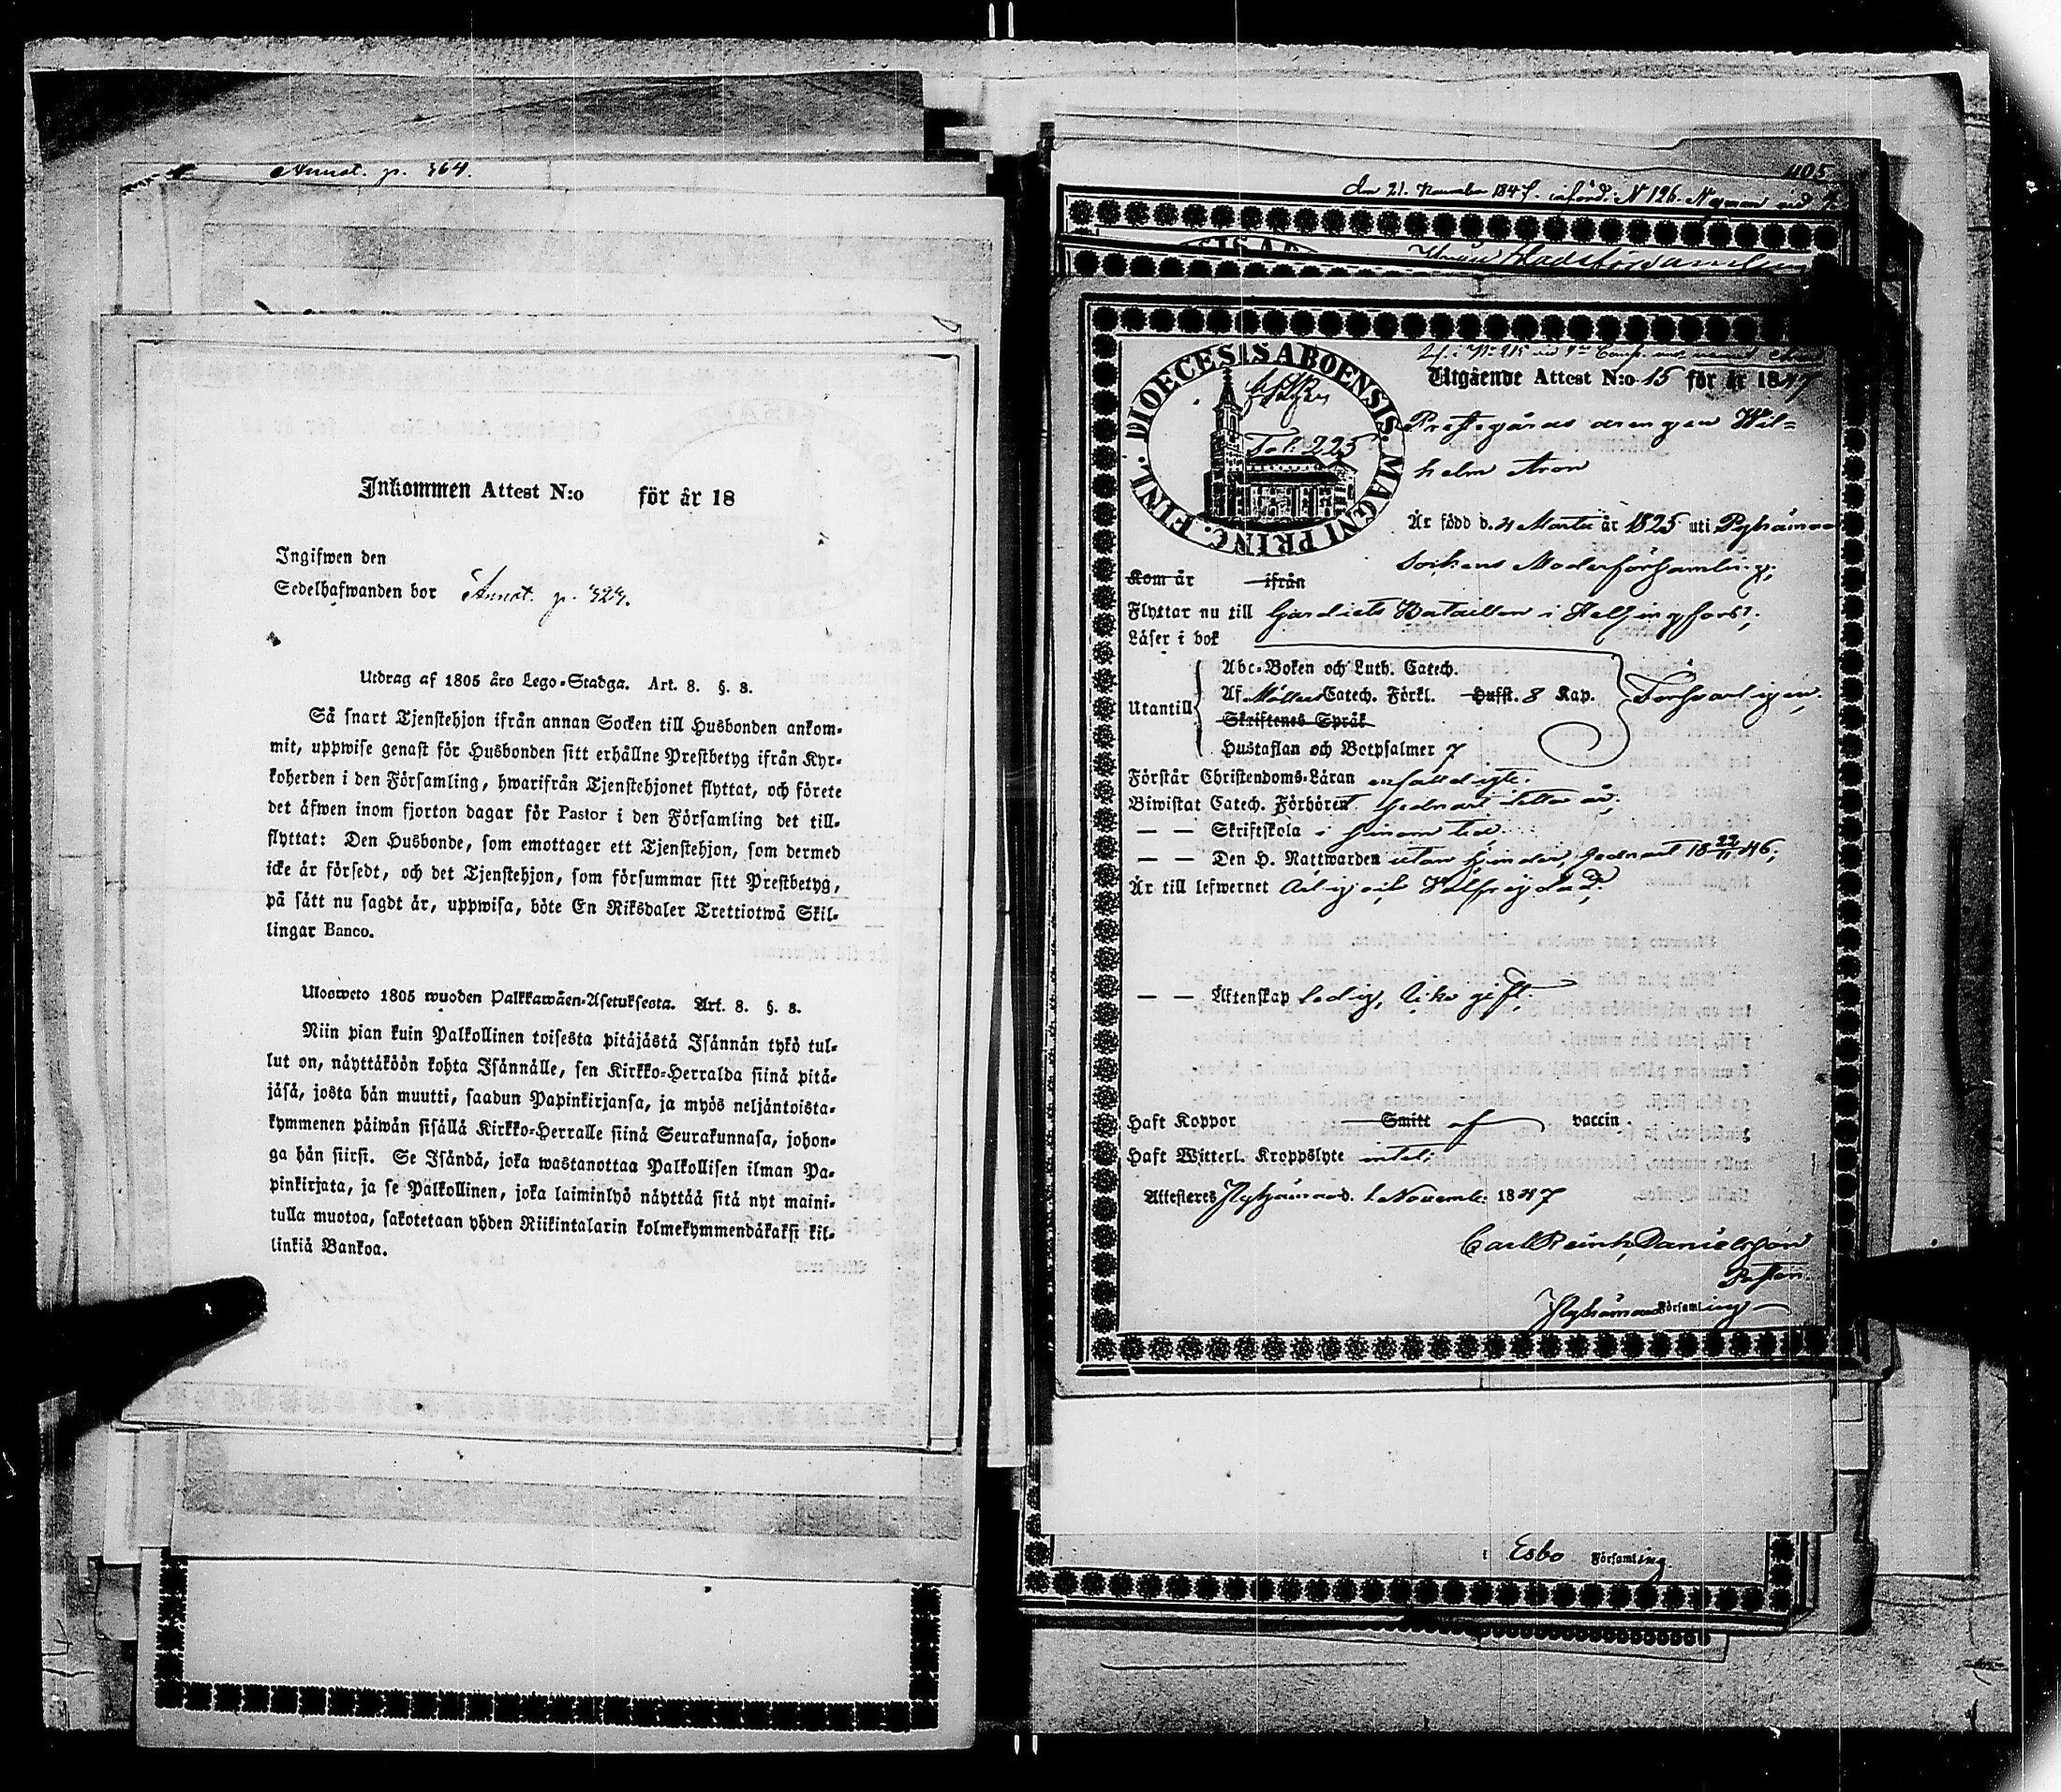 Annot. p. 364.
Inkommen Attest N:o för år 18
Ingifwen den
Sedelhafwanden bor Annot. p. 424.
Utdrag af 1805 års Lego-Stadga. Art. 8. §. 8.
Så snart Tjenstehjon ifrån annan Socken till Husbonden ankom-
mit, uppwise genast för Husbonden sitt erhållne Prestbetyg ifrån Kyr-
koherden i den Församling, hwarifrån Tjenstehjonet flyttat, och förete
det äfwen inom fjorton dagar för Pastor i den Församling det till-
flyttat: Den Husbonde, som emottager ett Tjenstehjon, som dermed
icke är försedt, och det Tjenstehjon, som försummar sitt Prestbetyg,
på sätt nu sagdt är, uppwisa, böte En Riksdaler Trettiotwå Skil-
lingar Banco.
Ulosweto 1805 wuoden Palkkawäen-Asetuksesta. Art. 8. §. 8.
Niin pian kuin Palkollinen toisesta pitäjästä Isännän tykö tul-
lut on, näyttäköön kohta Isännälle, sen Kirkko-Herralda siinä pitä-
jäsä, josta hän muutti, saadun Papinkirjansa, ja myös neljäntoista-
kymmenen päiwän sisällä Kirkko-Herralle siinä Seurakunnasa, johon-
ga hän siirsi. Se Isändä, joka wastanottaa Palkollisen ilman Pa-
pinkirjata, ja se Palkollinen, joka laiminlyö näyttää sitä nyt maini-
tulla muotoa, sakotetaan yhden Riikintalarin kolmekymmendäkaksi kil-
linkiä Bankoa.
405
den 21. November 1847. införd. N 126. Nyman vid
Stadsförsamling
DIOECESIS ABOENSIS. MAGNI PRINC. FINL.
Fol. 225
Utgående Attest N:o 15 för år 1847
Prestegårds drengen Wil=
helm Aron
Är född d. 4 Martii år 1825 uti Pyhämaa
Sockens Moderförsamling;
Kom år ifrån
Flyttar nu till Gardets Bataillon i Helsingfors;
Läser i bok
Utantill
Abc-Boken och Luth. Catech.
Af Möllers Catech. Förkl. Husst. 8 Kap. Försvarligen.
Skriftenes Språk
Hustaflan och Botpsalmer 7
Förstår Christendoms-Läran enfaldigt.
Biwistat Catech. Förhören sednast detta år;
— — Skriftskola i sinom tid.
— — Den H. Nattwarden utan hinder, sednast 18 22/11 46;
Är till lefwernet
— — Äktenskap ledig, icke gift.
Haft Koppor Smitt af vaccin.
Haft Witterl. Kroppslyte intet;
Attesteras Pyhämaa d. 1 Novemb: 1847
Carl Reinh. Danielsson
Pastor.
Pyhämaa Församling
i Esbo Församling.